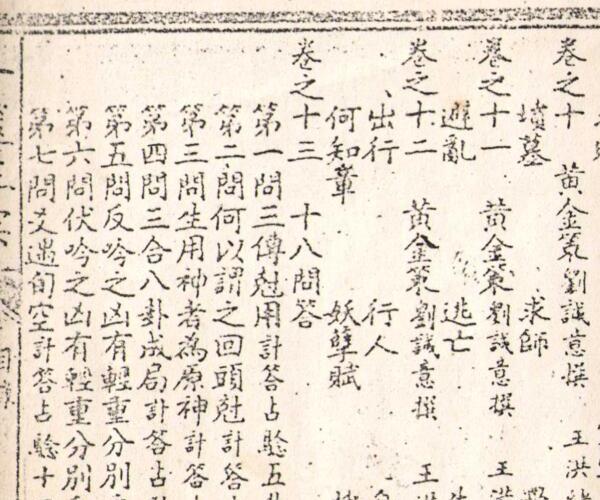 卷之十　黄金策劉誠意撰　王洪
墳墓　求師
卷之十一　黄金策劉誠意撰　王洪
避亂　逃亡
卷之十二　黄金策劉誠意撰　王
出行　行人
何知章　妖孽賦
卷之十三　十八問答
第一問三傳尅用計答占驗五
第二問何以謂之回頭尅計答
第三問生用神者爲原神計答
第四問三合八卦成局計答占
第五問反吟之凶有輕重分別
第六問伏吟之凶有輕重分別
第七問爻遇旬空計答占驗十
目